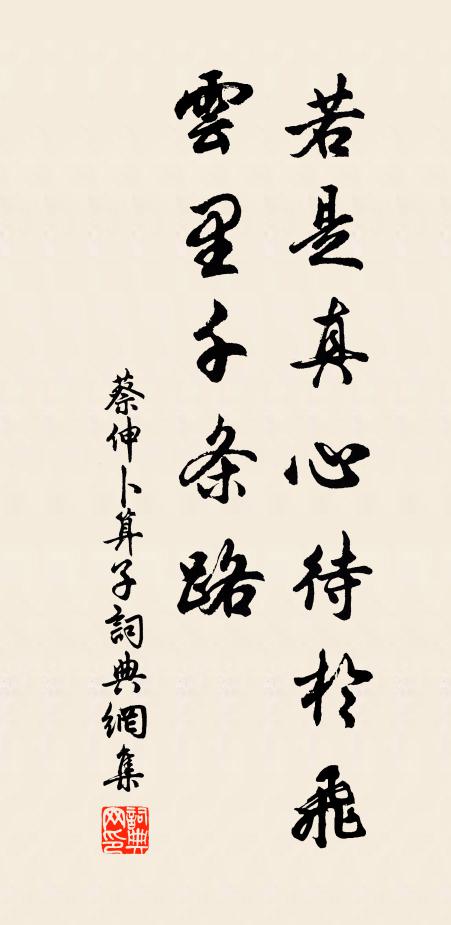 若是真心待於飛
雲里千条路
蔡伸卜算子詞典網集
詞典网印